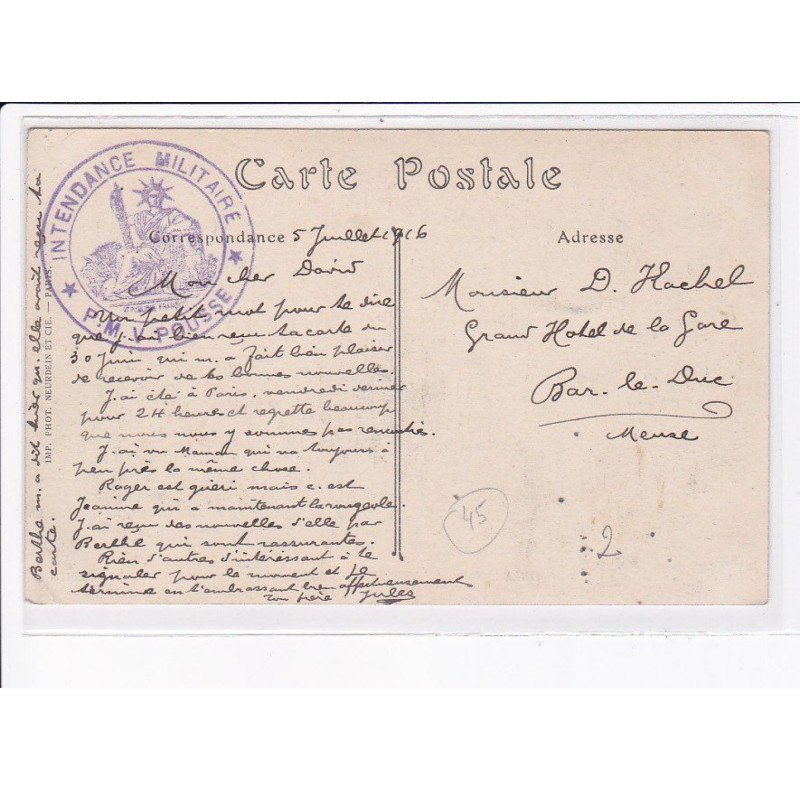 Carte Postale
INTENDANCE MILITAIRE
P.M.I. POUSSE
Correspondance
5 Juillet 1916
Mon cher David
Un petit mot pour te dire
que j'ai bien reçu ta carte du
30 Juin qui m'a fait bien plaisir
de recevoir de tes bonnes nouvelles.
J'ai été à Paris, vendredi dernier
pour 24 heures et regrette beaucoup
que nous nous y sommes pas rencontrés.
J'ai vu Maman qui va toujours à
peu près la même chose.
Roger est guéri mais c'est
Jeanine qui a maintenant la rougeole.
J'ai reçu des nouvelles d'elle par
Berthe qui sont rassurantes.
Rien d'autres d'intéressant à te
signaler pour le moment et je
termine en t'embrassant bien affectueusement
ton frère Jules
Berthe m'a dit hier qu'elle avait reçu ta
carte.
IMP. PHOT. NEURDEIN ET CIE. — PARIS.
Adresse
Monsieur D. Hachel
Grand Hotel de la Gare
Bar-le-Duc
Meuse
45
2